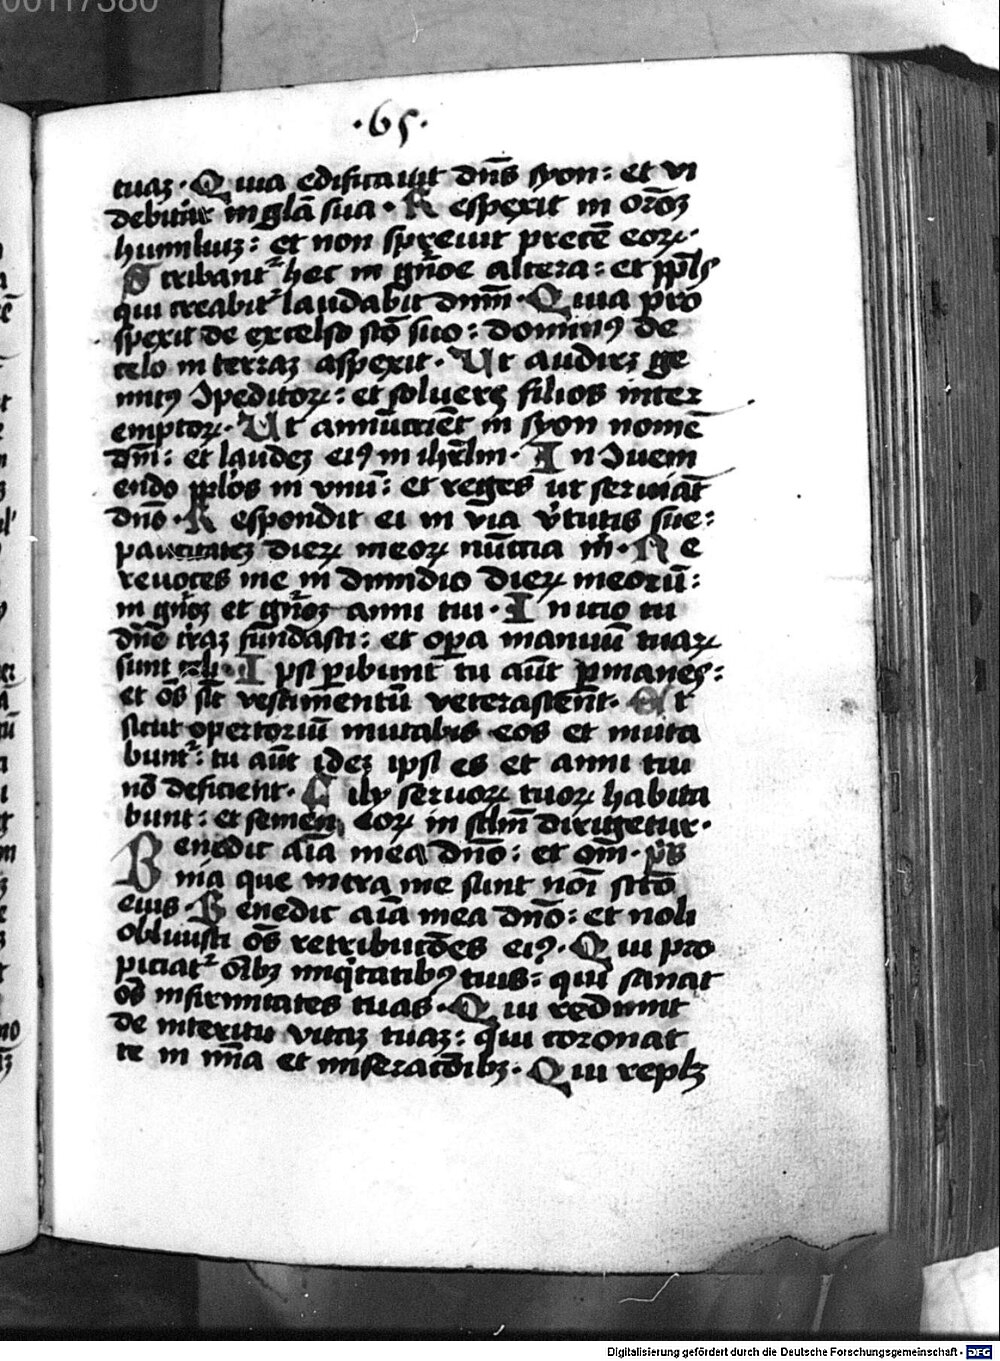 00117380
·65·
tuaʒ · Quia edificauit dn̄s syon: et vi
debitur in gl̄a sua · Respexit in or̄oʒ
humiliuʒ: et non spreuit precē eoꝝ ·
Scribant᷑ hec in gn̄oe altera: et ppl̄s
qui creabit᷑ laudabit dnm̄ · Quia pro
spexit de excelso stō suo: dominꝰ de
celo in terraʒ aspexit · Ut audirʒ ge
mitꝰ Ipeditoꝝ: et solueret filios inter
emptoꝝ · Ut annūciēt in syon nomē
dn̄i: et laudeʒ eiꝰ in ihrl̄m · In Iuem
endo ppl̄os in vnū: et reges ut seruiāt
dnō · Respondit ei in via v̄tutis sue:
paucitateʒ dieꝝ meoꝝ nūcia m̄ · Ne
reuoces me in dimidio dieꝝ meorū:
in gn̄oʒ et gn̄oʒ anni tui · Inicio tu
dn̄e t̄raʒ fundasti: et opa manuū tuaꝝ
sunt celi · Ipsi ꝑibunt tu aūt ꝑmanes:
et ōs sic̄ vestimentū veterascent · Et
sicut opertoriū mutabis eos et muta
bunt᷑: tu aūt ideʒ ipse es et anni tui
nō deficient · Filij seruoꝝ tuoꝝ habita
bunt: et semen eoꝝ in sclm̄ dirigetur ·
Benedic aīa mea dnō: et om̄ ·
nia que intra me sunt noī scto
eius · Benedic aīa mea dnō: et noli
obliuisci ōs retributōes eiꝰ · Qui pro
piciat᷑ oībʒ iniqitatibꝰ tuis: qui sanat
ōs infirmitates tuas · Qui redimit
de interitu vitaʒ tuaʒ: qui coronat
te in mīa et miseratōibʒ · Qui replʒ
Digitalisierung gefördert durch die Deutsche Forschungsgemeinschaft - DFG